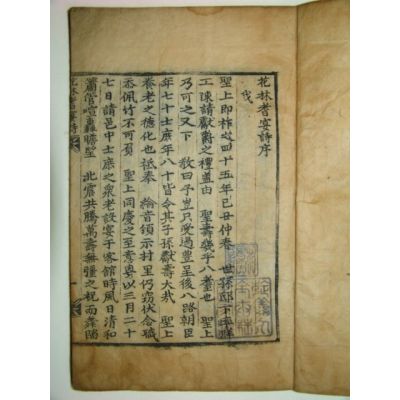 花林耆宴詩序
聖上即祚之四十五年己丑仲春 世孫邸下率羣
工陳請獻爵之禮盖由 聖壽幾乎八耋也 聖上
乃可之又下 敎曰予豈只受過豊呈後八路朝臣
年七十士庶年八十皆令其子孫獻壽大哉 聖上
養老之德化也祗奉 綸音領示村里仍竊伏念職
忝佩竹不可負 聖上同慶之至意粤以三月二十
七日請邑中士庶之衆老設宴于客舘時風日清和
簫管喧轟瞻望 北宸共騰萬壽無疆之祝而舞蹈
花林耆宴詩